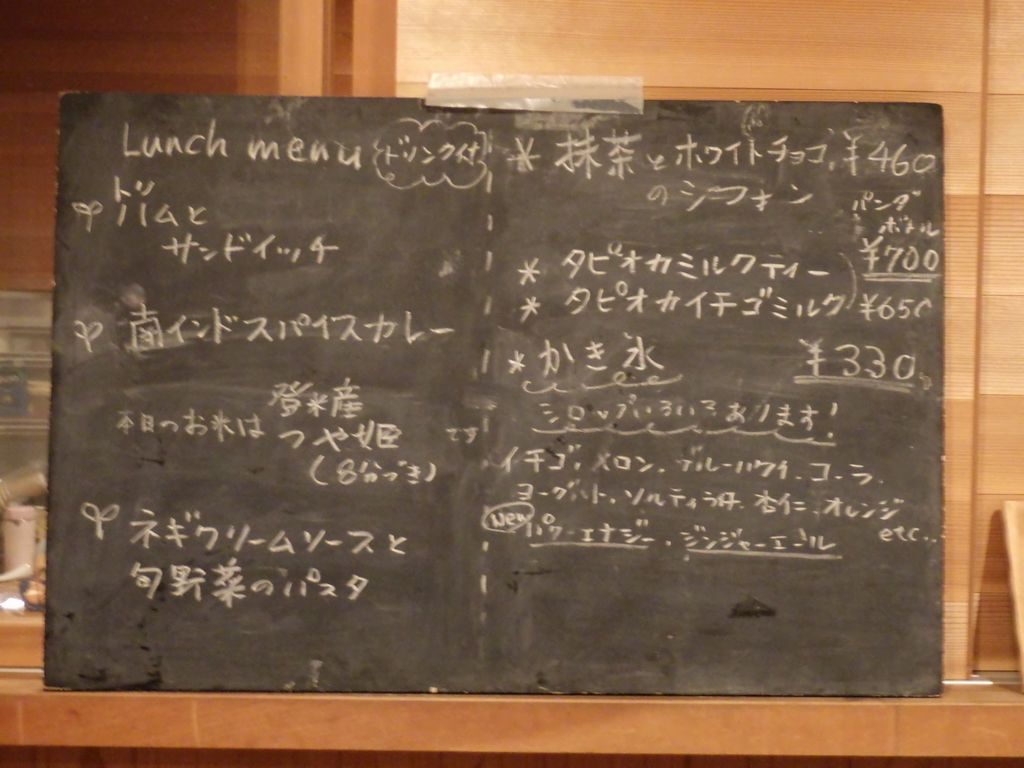 Lunch menu ドリンク付
ハムと
サンドイッチ
南インドスパイスカレー
登米産
本日のお米は つや姫 です
(8分づき)
ネギクリームソースと
旬野菜のパスタ
* 抹茶とホワイトチョコ ¥460
のシフォン
パンダ
ボトル
¥700
* タピオカミルクティー
* タピオカイチゴミルク ¥650
* かき氷 ¥330
シロップいろいろあります!
イチゴ、メロン、ブルーハワイ、コーラ、
ヨーグルト、ソルティライチ、杏仁、オレンジ
etc...
New パワーエナジー、ジンジャーエール